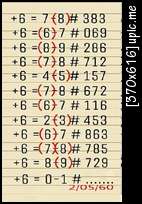 +6 = 7-(8)# 383
+6 =(6)-7 # 069
+6 =(8)-9 # 266
+6 =(7)-8 # 712
+6 = 4-(5)# 157
+6 =(6)-7 # 672
+6 =(6)-7 # 116
+6 = 2-(3)# 453
+6 = (6)-7# 863
+6 =(7)-8 # 785
+6 = 8-(9)# 729
+6 = 0-1 # .......
2/05/60
[370x616] upic.me